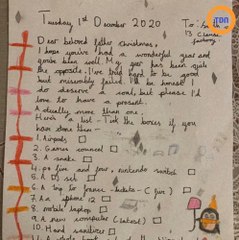 Tuesday 1st December 2020
To: Santa
13
factory
Dear beloved father christmas,
I hope you've had a wonderful year and
you've been well. My year has been quite
the opposite. I've tried hard to be good
but miserably failed. I'd be honest I
do deserve a coal, but please I'd
love to have a present.
Actually more than one.
Here's a list - Tick the boxes if you
have done them -
1. Airpods
2. Games council
3. A snake
4. ps five and four, nintendo switch
5. A DJ set
6. A trip to france - tickets - (fur)
7. An iphone 12
8. mobile laptop
9. A new computer (latest)
10. Hand sanitizer